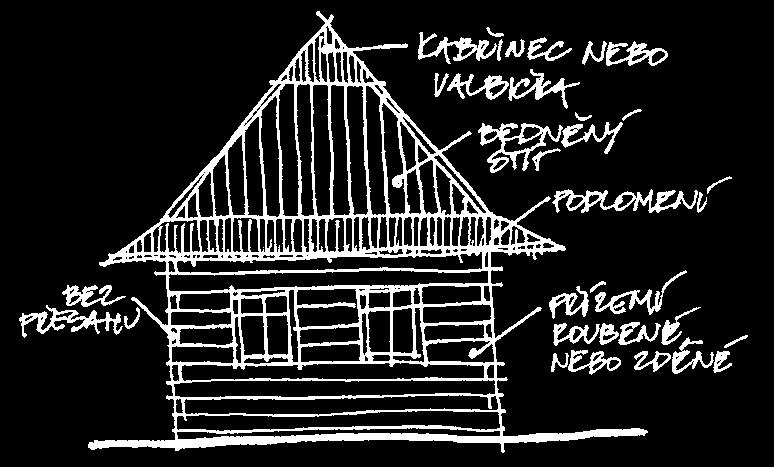 KABŘINEC NEBO
VALBIČKA
BEDNĚNÝ
ŠTÍT
PODLOMENÍ
BEZ
PŘESAHU
PŘÍZEMÍ
ROUBENÉ
NEBO ZDĚNÉ